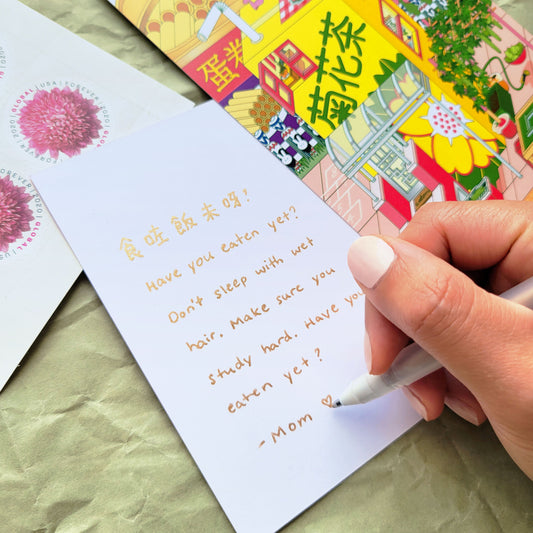 蛋糕
菊花茶
GLOBAL USA FOREVER 2020
GLOBAL
食咗飯未呀!
Have you eaten yet?
Don't sleep with wet
hair. Make sure you
study hard. Have you
eaten yet?
- Mom ♡